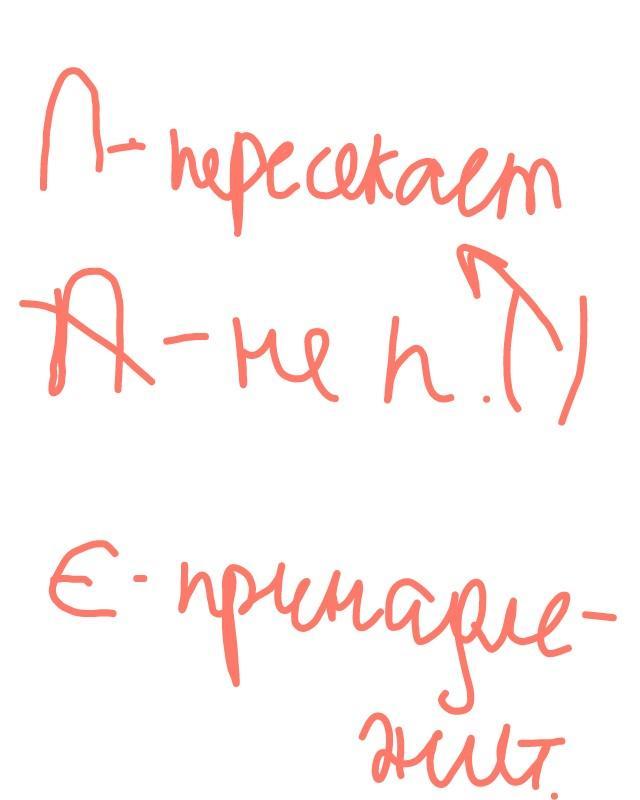 ∩ - пересекает
∩̸ - не п. (↑)
∈ - принадле-
жит.